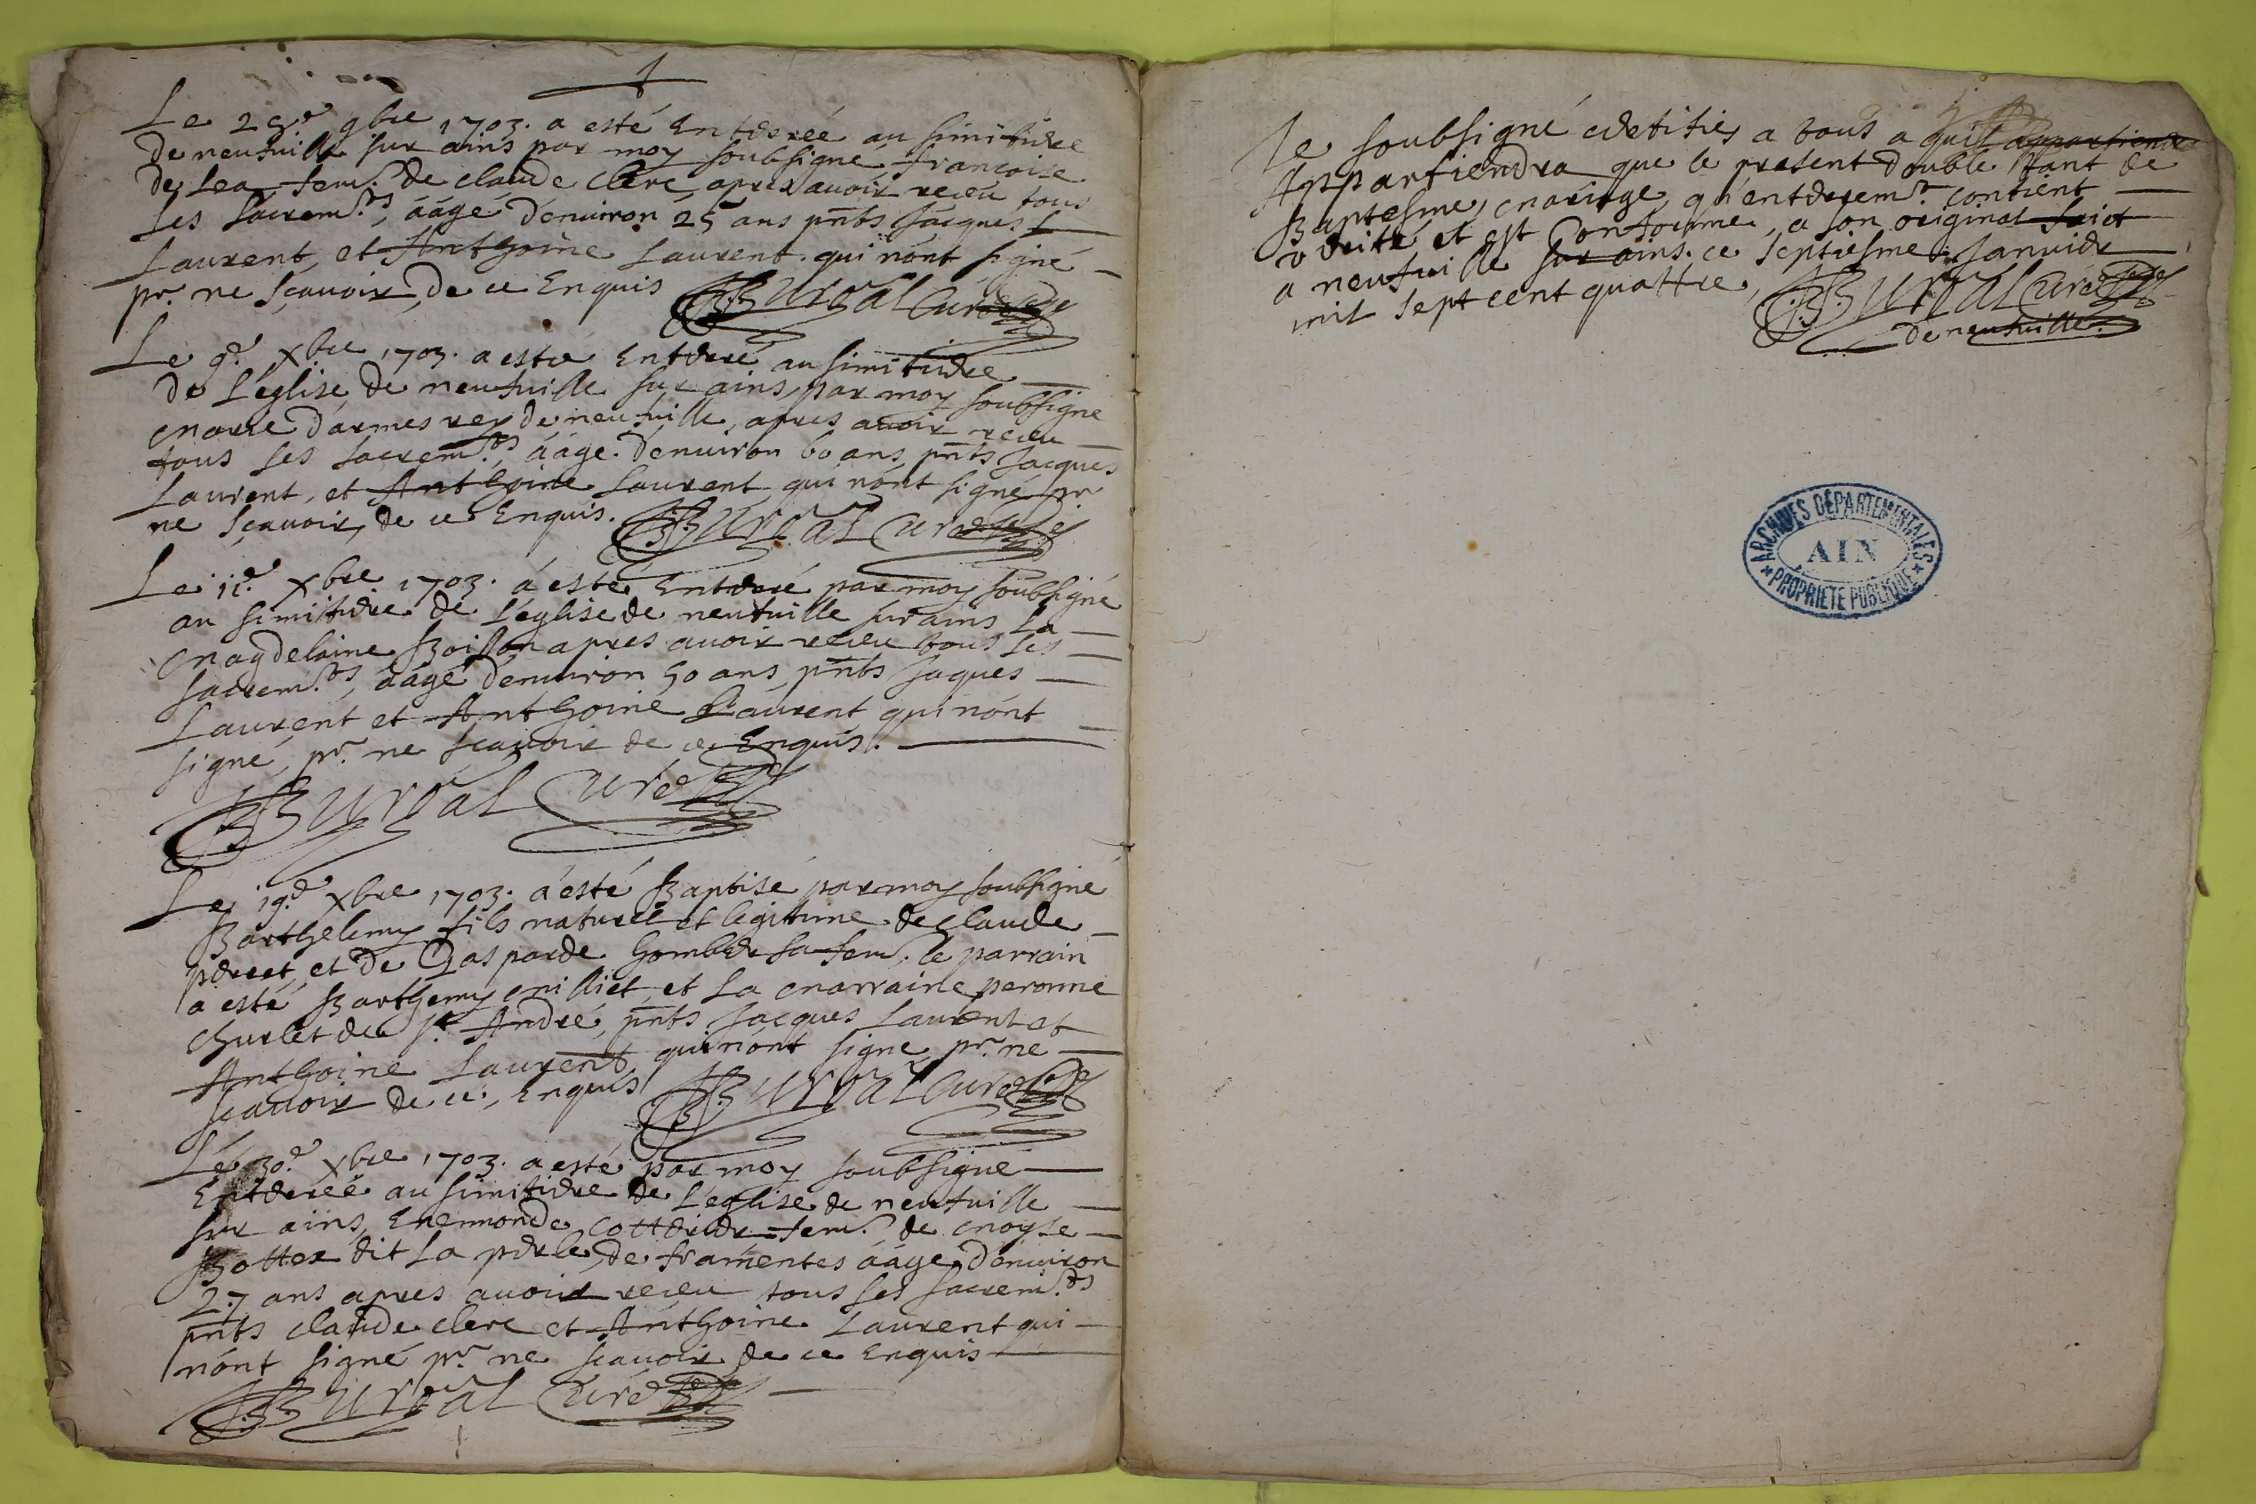 Le 25e 9bre 1703. a esté Enterreé au simitiere
de neufuille sur ains par moy soubsigné francoise
de lea fem. de claude clerc apres auoir receu tous
ses sacrem.ts, áágé d'enuiron 25 ans pnts Jacques
Laurent, et Anthoine Laurent qui nónt signé
pr. ne sçauoir, de ce Enquis Burtal Curé
Le 9e. xbre 1703. a esté Enterré au simitiere
de L'église de neufuille sur ains par moy soubsigné
marie d'armes rey de neufuille, apres auoir receu
tous ses sacrem.ts áágé d'enuiron 60 ans pnts Jacques
Laurent, et Anthoine Laurent qui nónt signé pr
ne sçauoir, de ce Enquis. Burtal Curé
Le 11e. xbre 1703. á esté Enterré par moy soubsigné
au simitiere de L'église de neufuille sur ains La
magdelaine Boisson apres auoir receu tous ses
sacrem.ts, áágé d'enuiron 50 ans, pnts Jaques
Laurent et Anthoine Laurent qui nónt
signé, pr. ne sçauoir de ce Enquis.
Burtal Curé
Le 19e. xbre 1703. á esté Baptisé par moy soubsigné
Barthelemy fils naturel et legitime de claude
perret, et de Gasparde gomber sa fem. le parrain
a esté Barthemy milliet et la marraine peronne
churlet de St. André, pnts Jacques Laurent et
Anthoine Laurent qui nónt signe pr. ne
sçauoir de ce, Enquis Burtal Curé
Le 30e. xbre 1703. a esté par moy soubsigné
Enterreé au simitiere de L'eglise de neufuille
sur ains, Enemonde Cotterier fem. de moyse
Bottex dit la perle, de framentes áágé d'énuiron
27 ans apres auoir receu tous ses sacrem.ts
pnts claude clerc et Anthoine Laurent qui
nónt signé pr. ne sçauoir de ce Enquis
Burtal Curé
Je soubsigné certifie, a tous a quil appartiendra
Appartiendra que le present double tant de
Baptesme, mariage, qu'enterrem.t contient
verité et est Conforme, a son original faict
a neufuille sur ains. ce septiesme Januier
mil sept cent quattre, Burtal Curé
de neufuille.
ARCHIVES DÉPARTEMENTALES
AIN
PROPRIÉTÉ PUBLIQUE